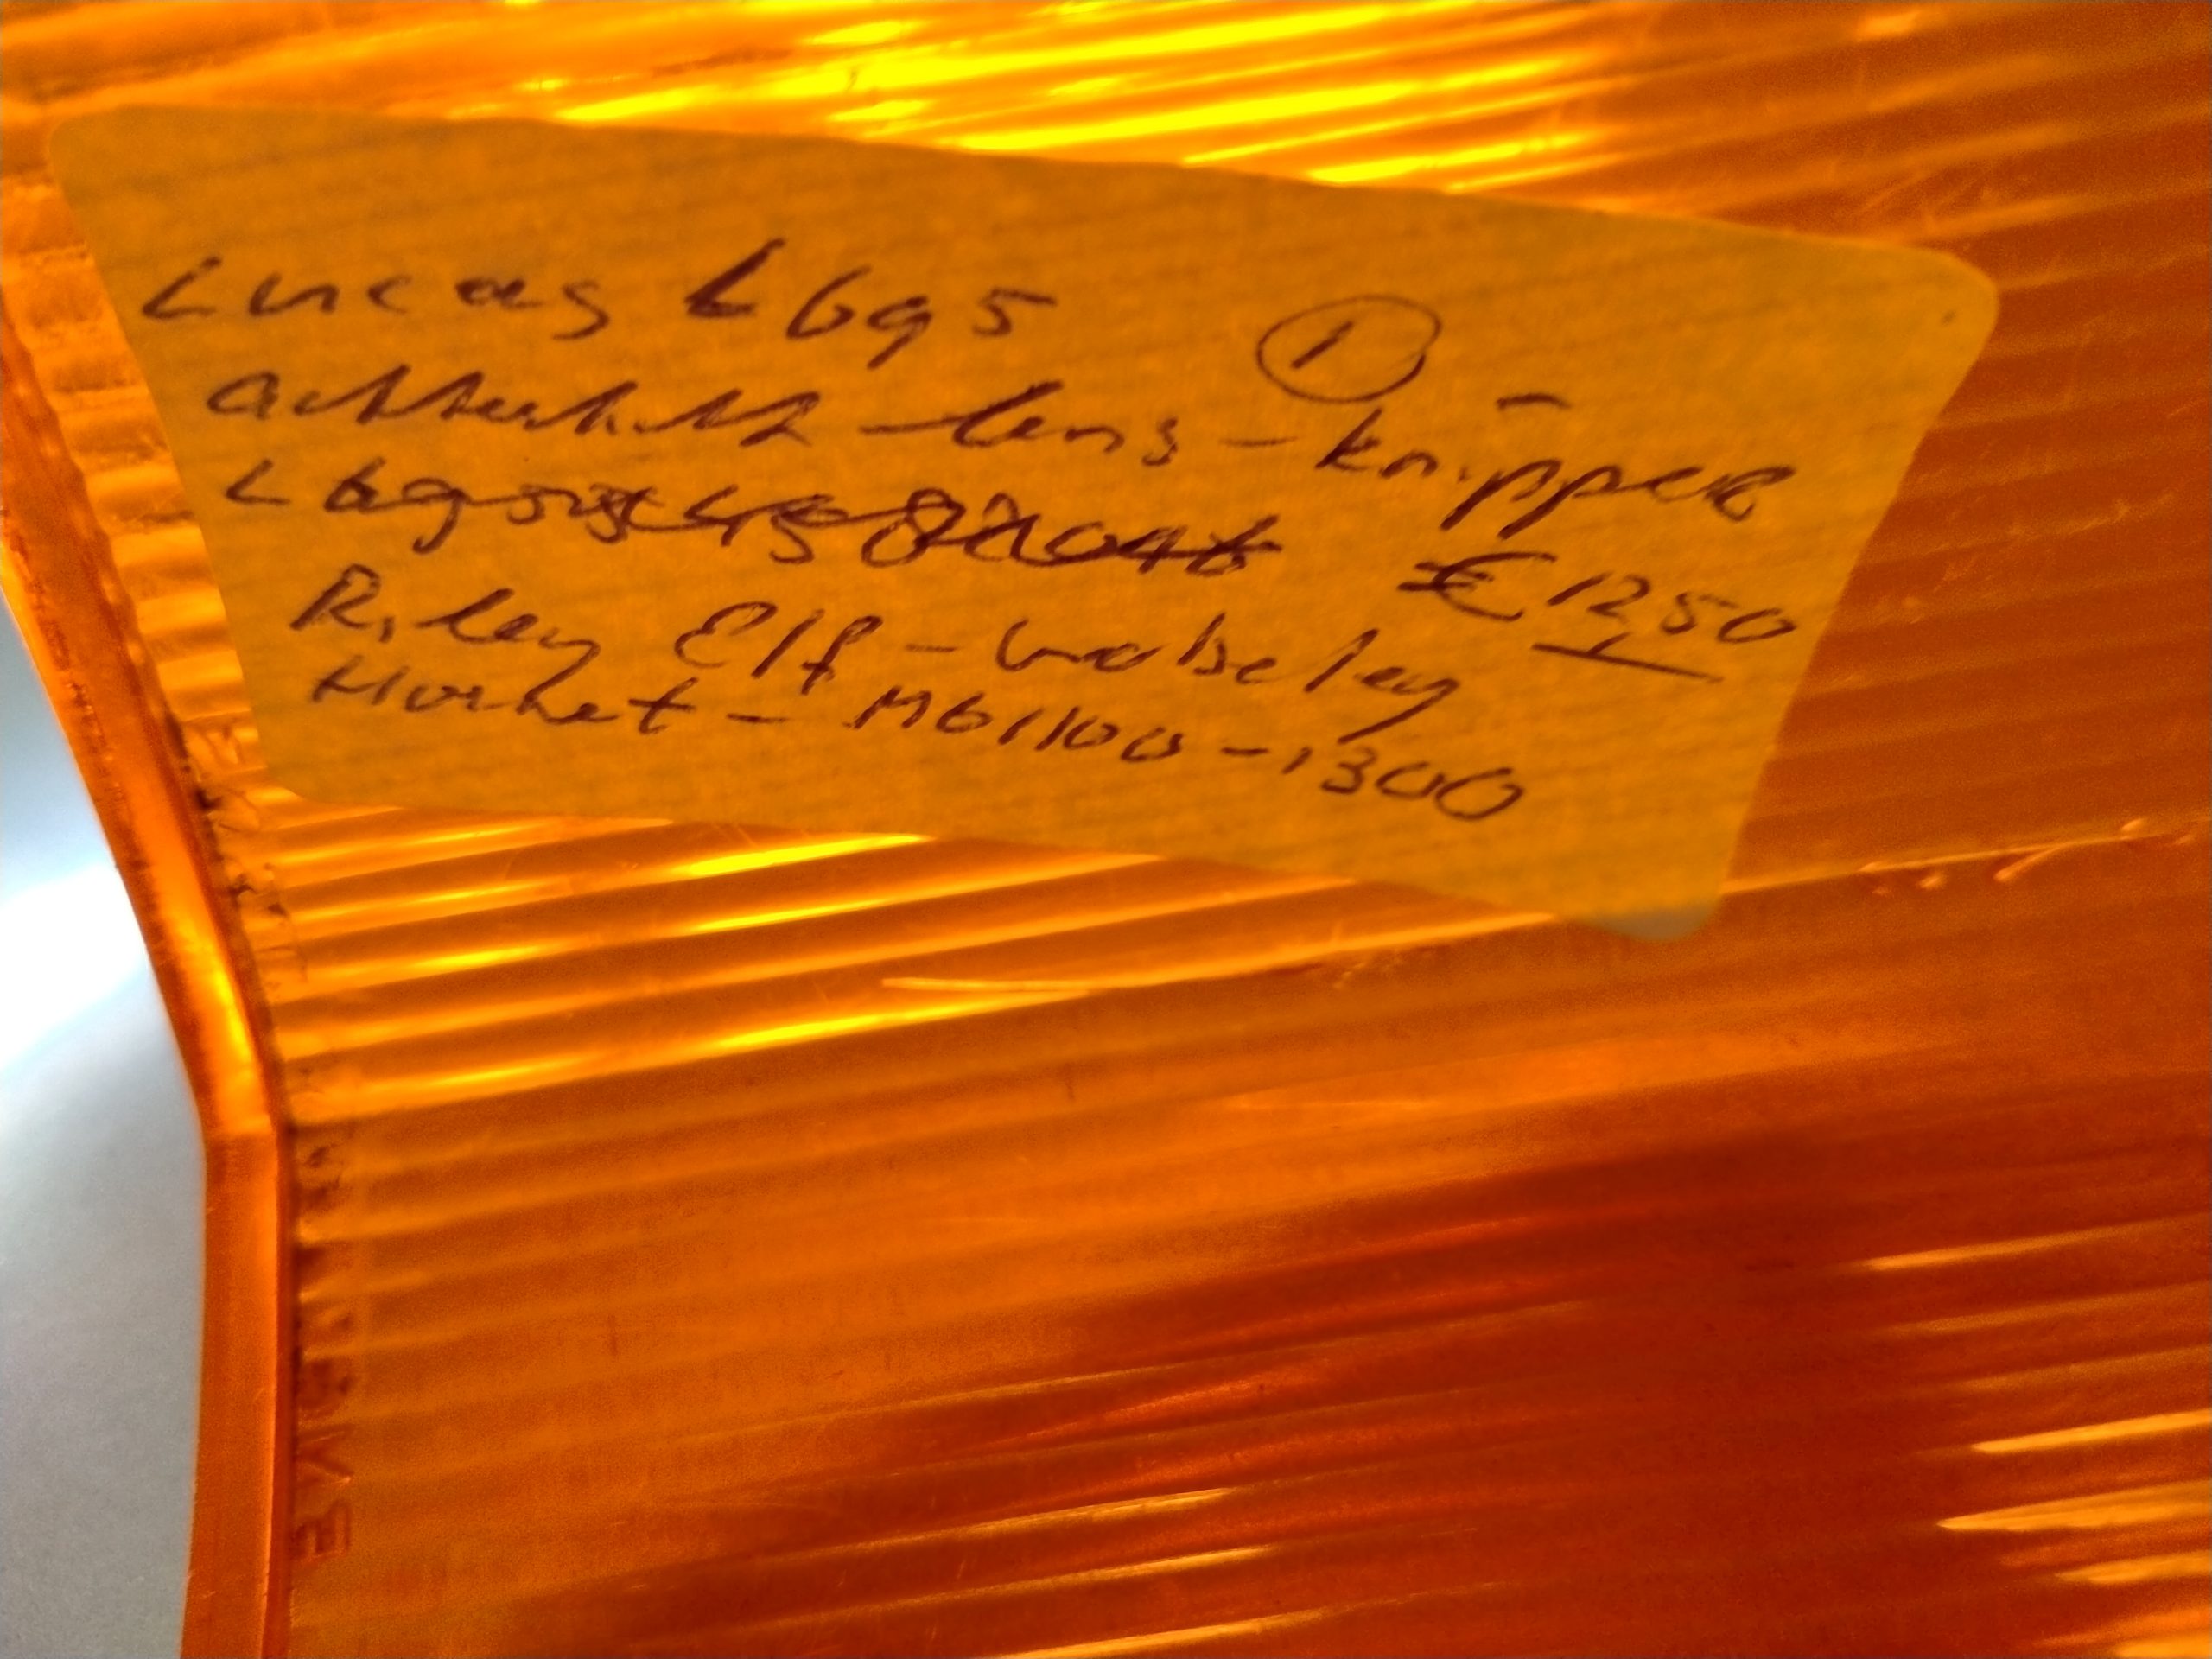 Lucas L695
①
achterlicht - lens - knipper
€ 1250
Riley Elf - Wolseley
Hornet - MG1100 - 1300